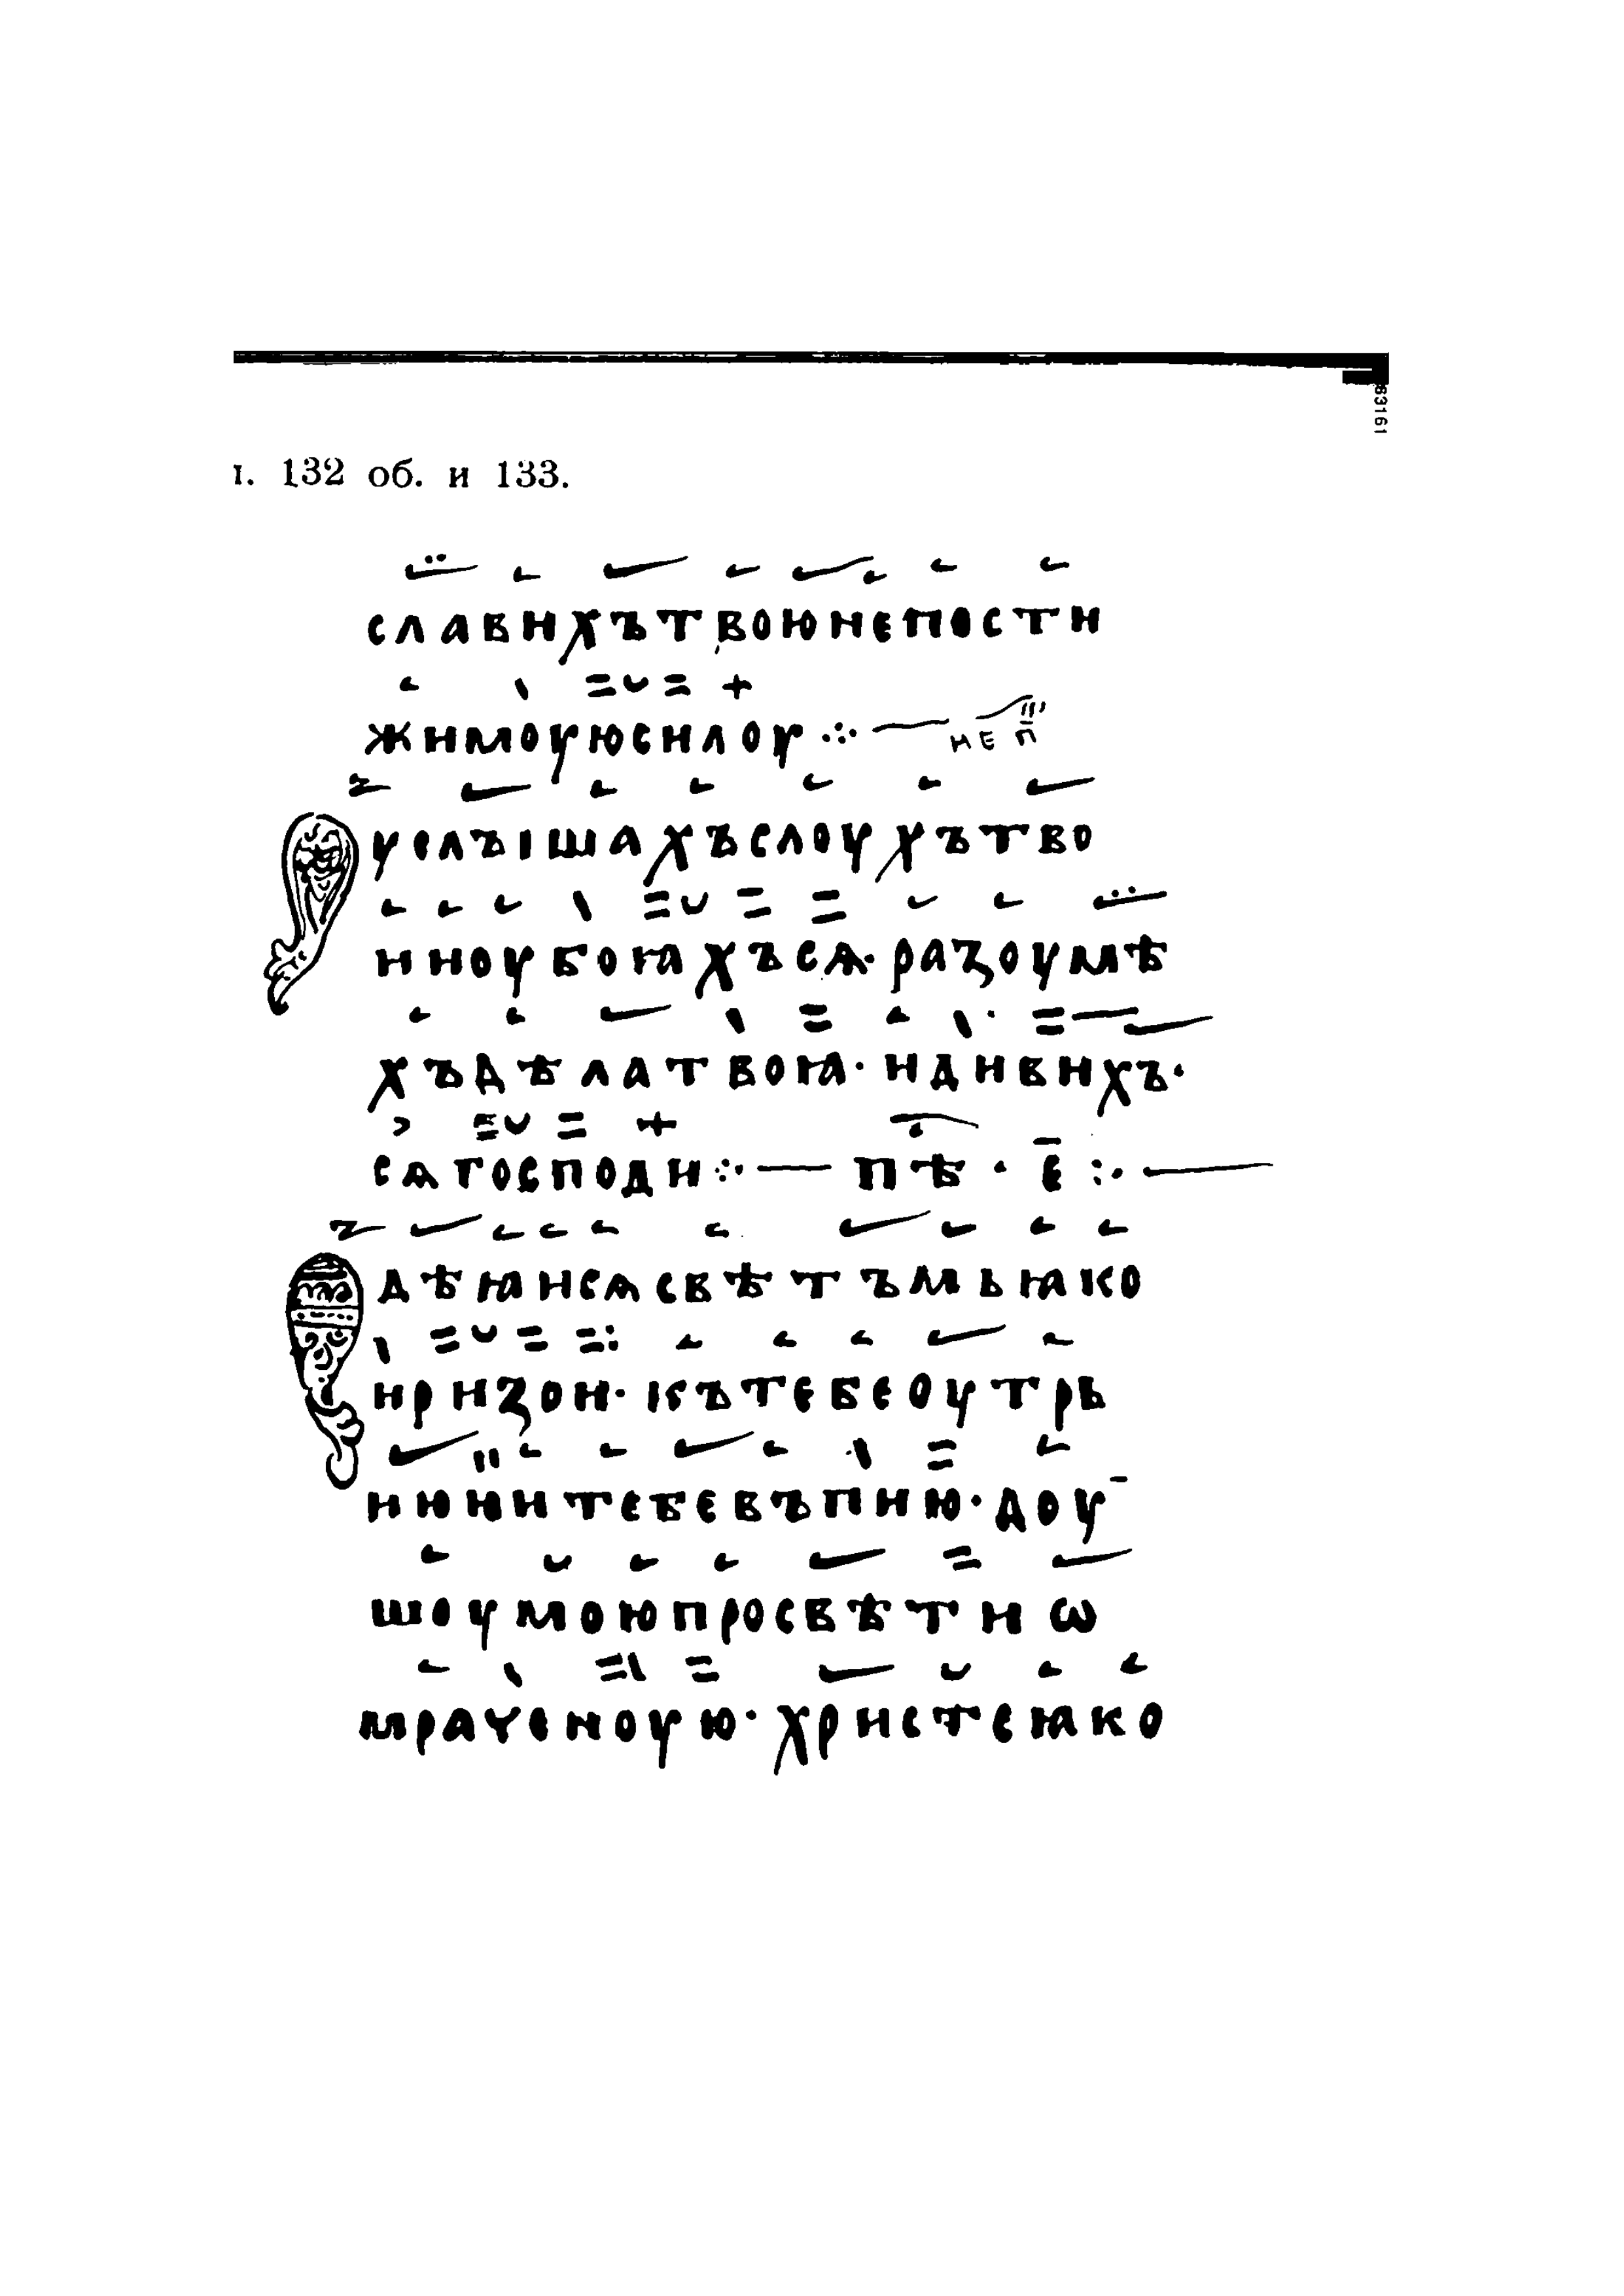 63161
ı. 132 об. и 133.
славихътвоюнепости
жимоуюсилоу ⁘ — неп
ѹслъішахъслоухътво
иноубоꙗхъсѧ· разоумѣ
хъдѣлатвоꙗ· идивихъ·
сѧгосподи ⁘ — пѣ · е҃ :· —
дѣꙗисѧсвѣтъмьꙗко
иризои· кътебеоутрь
нюиитебевъпию· доу
шоумоюпросвѣтиѡ
мраченоую· христеꙗко